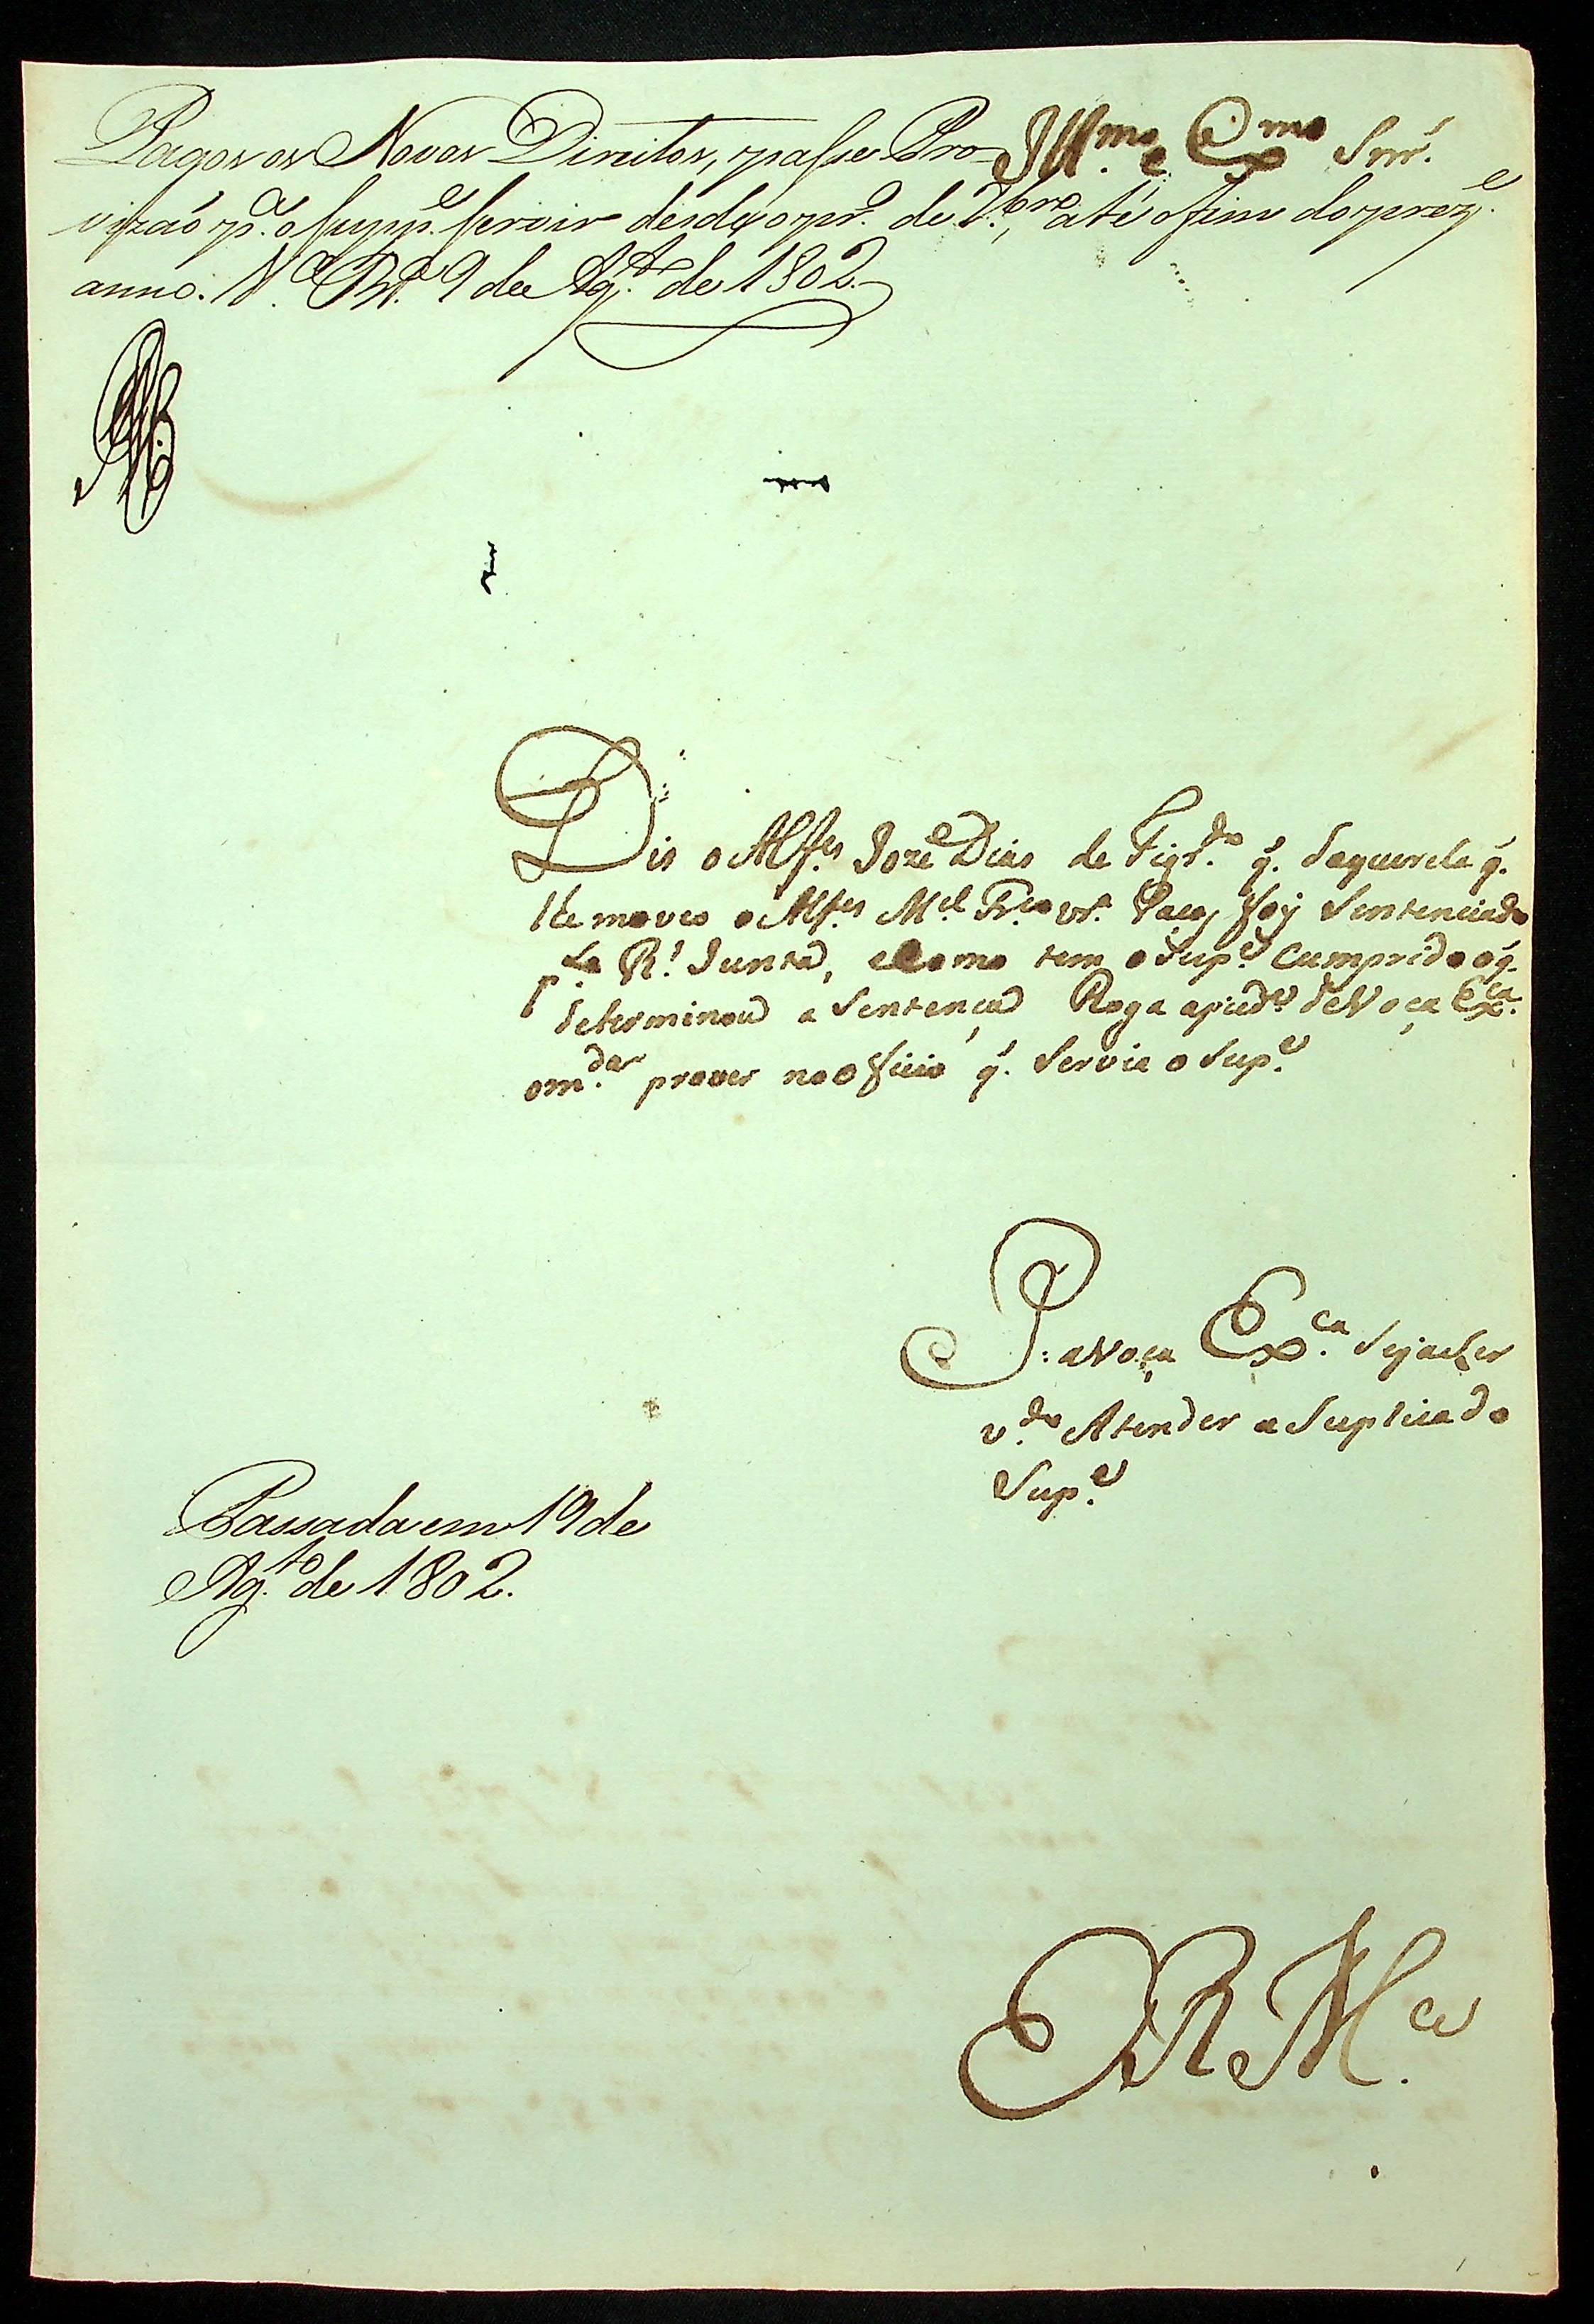 Pagos os Novos Direitos, passe Pro- Ill.mo e Ex.mo Snr̃.
vizaõ p.a o supp.e servir desde o pr.o de 7.bro, até o fim do prez.e
anno. V.a B.a 9 de Ag.to de 1802.
Dis o Alf.es Jozé Dias de Figr.do q̃. da querela q̃.
lhe moveo o Alf.es M.el Fr.co foy Sentenciado
p.la R.l Junta, e como tem o Sup.e Cumprido o q̃.
determinou a Sentença Roga a pied.e de Voça Ex.ca
o m.dar prover no oficio q̃. Servia o Sup.e
P: a Voça Ex.ca Seja Ser
v.do Atender a Suplica do
Sup.e
Passada em 19 de
Ag.to de 1802.
E R M.ce